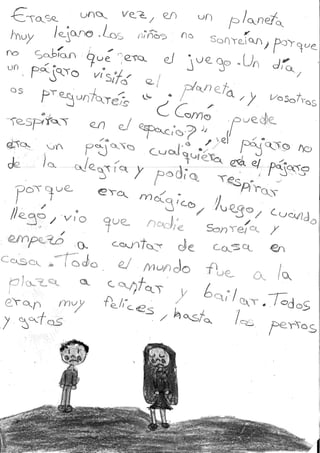 Erase una vez, en un planeta
muy lejano. Los niños no sonreían, porque
no sabían qué era el juego. Un día,
un pájaro visitó el planeta, y vosotros
os preguntaréis " ¿Como puede
respirar en el espacio?", el pájaro no
era un pájaro cualquiera era el pájaro
de la alegría y podia respirar
porque era mágico, luego, cuando
llegó, vio que nadie sonreía y
empezó a cantar de casa en
casa. Todo el mundo fue a la
plaza a cantar y bailar. Todos
eran muy felices, hasta los perros
y gatos